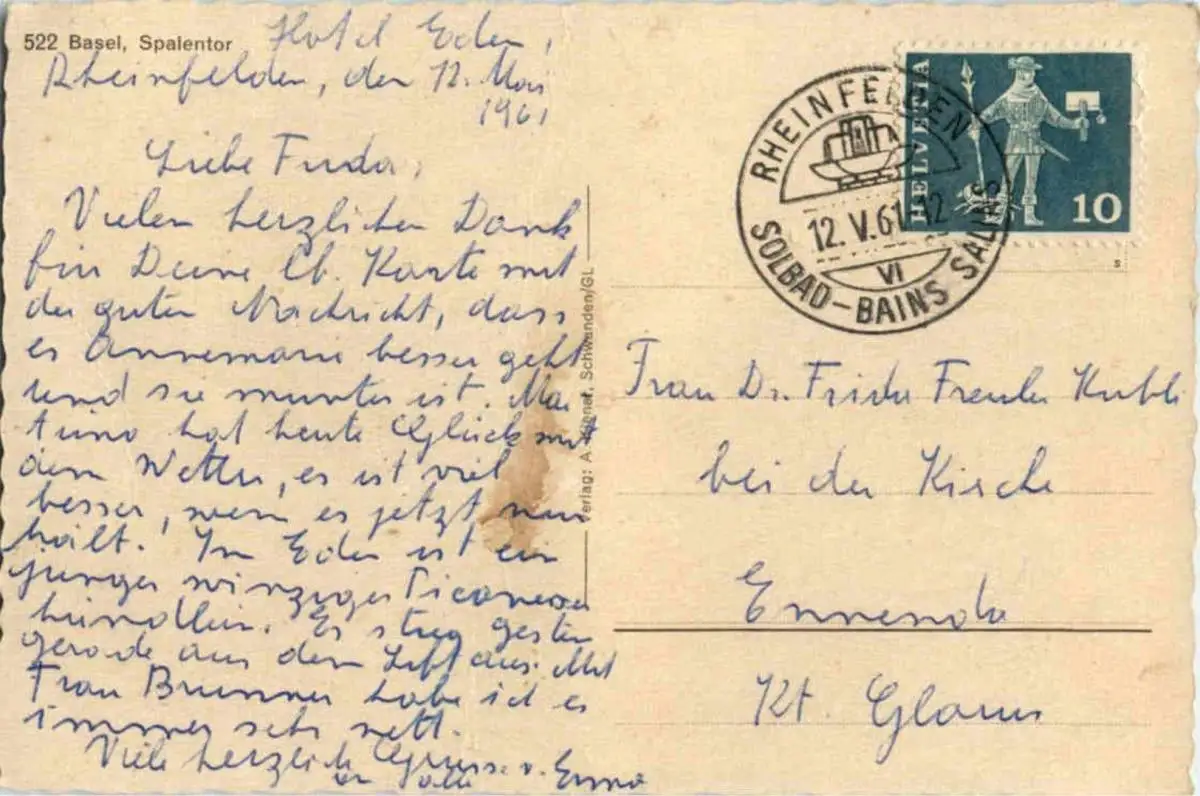 522 Basel, Spalentor
Hotel Eden,
Rheinfelden, den 12. Mai
1961
Liebe Frida,
Vielen herzlichen Dank
für Deine lb. Karte mit
der guten Nachricht, dass
es Annemarie besser geht
und sie munter ist.
hat heute Glück mit
dem Wetter, es ist viel
besser, wenn es jetzt nur
hält. Im Eden ist ein
junger winziger
hündlein. Es stieg gestern
gerade aus dem Lift aus. Mit
Frau Brunner habe ich es
immer sehr nett.
Viele herzliche Grüsse v. Emma
an alle
Verlag: A. Schwanden/GL
RHEINFELDEN
12. V. 61-12
VI
SOLBAD-BAINS SALINS
HELVETIA
10
S
Frau Dr. Frida Freuler Kubli
bei der Kirche
Ennenda
Kt. Glarus